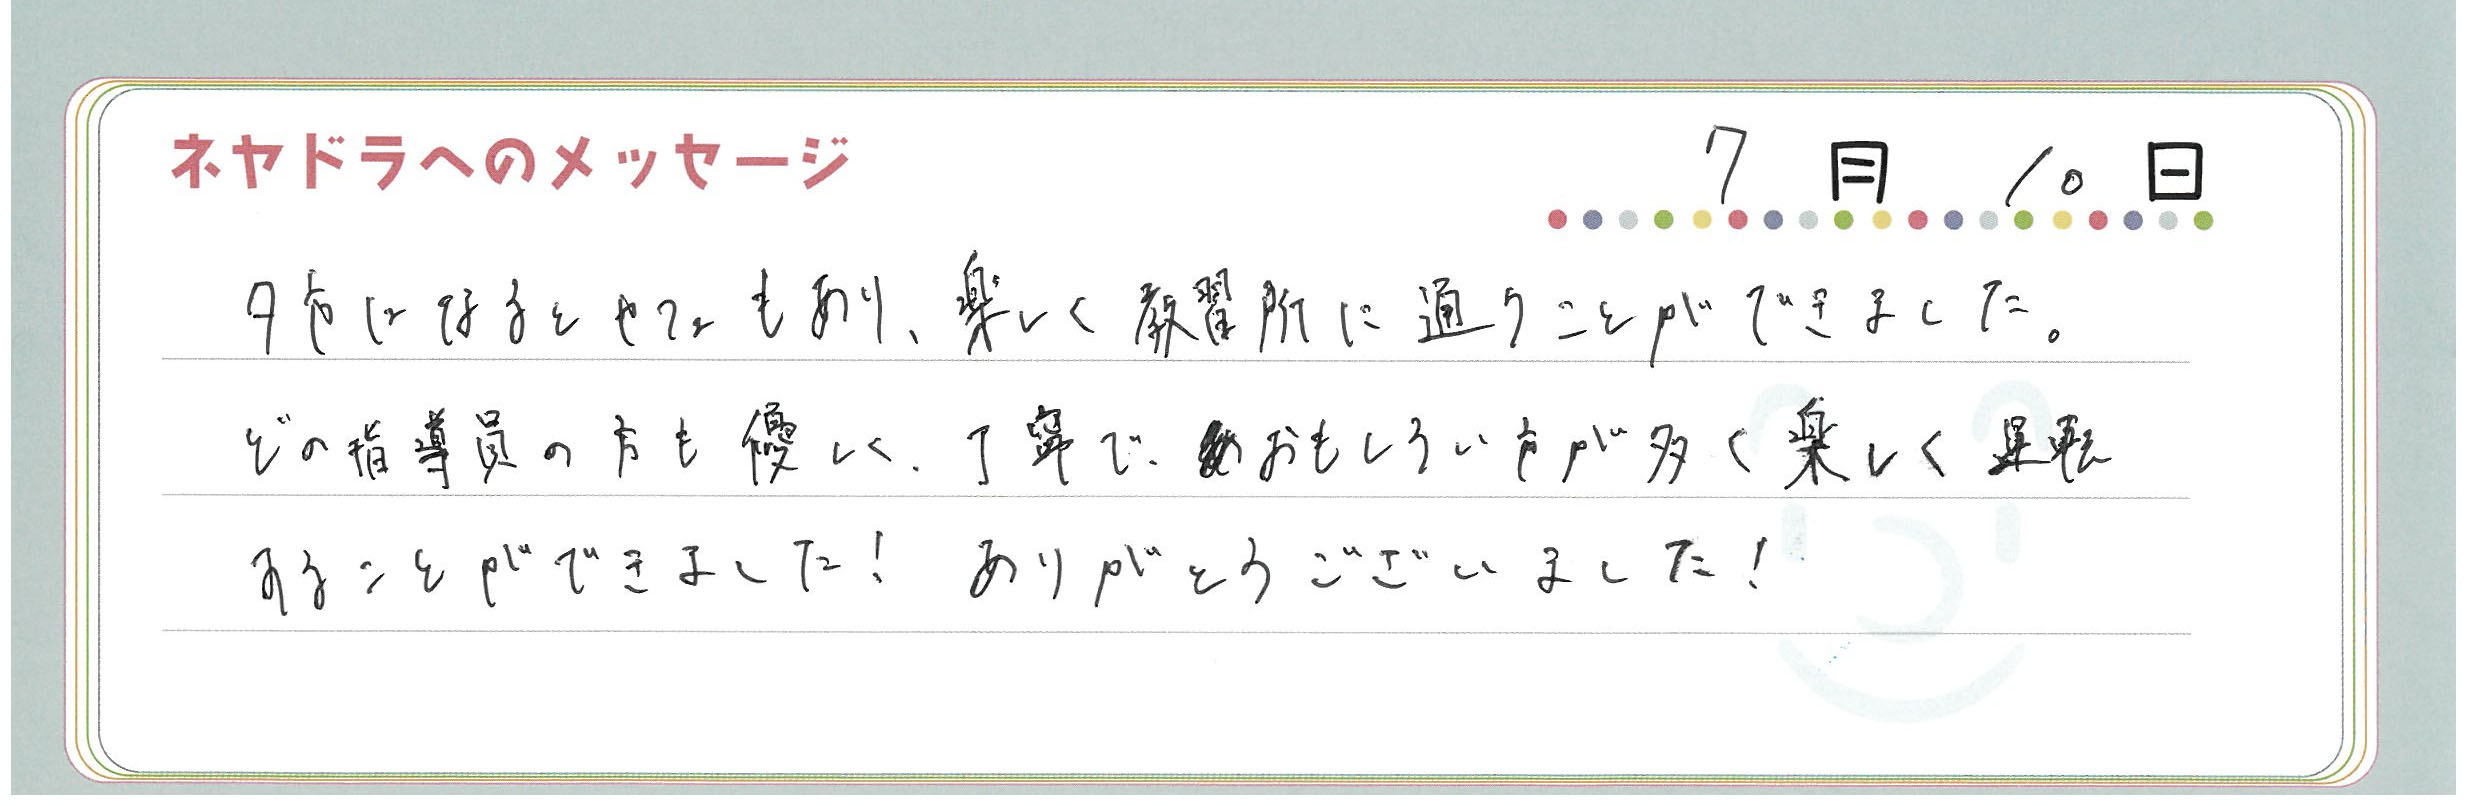 ネヤドラへのメッセージ
7月 10日
になると もあり、楽しく教習所に通うことができました。
どの指導員の方も優しく、丁寧で、おもしろい方が多く楽しく運転
することができました! ありがとうございました!